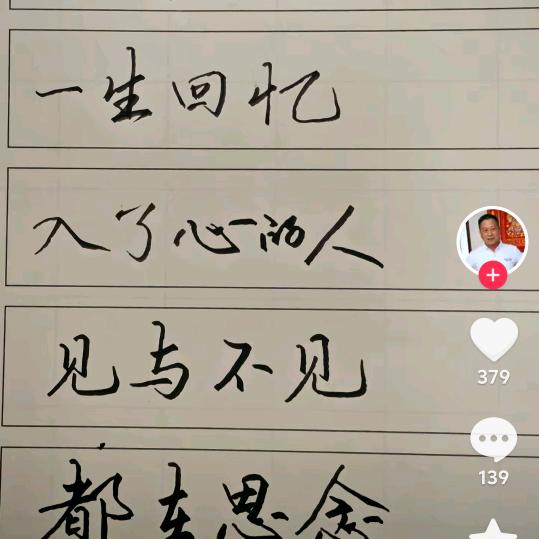 一生回忆
入了心的人
见与不见
都在思念
379
139